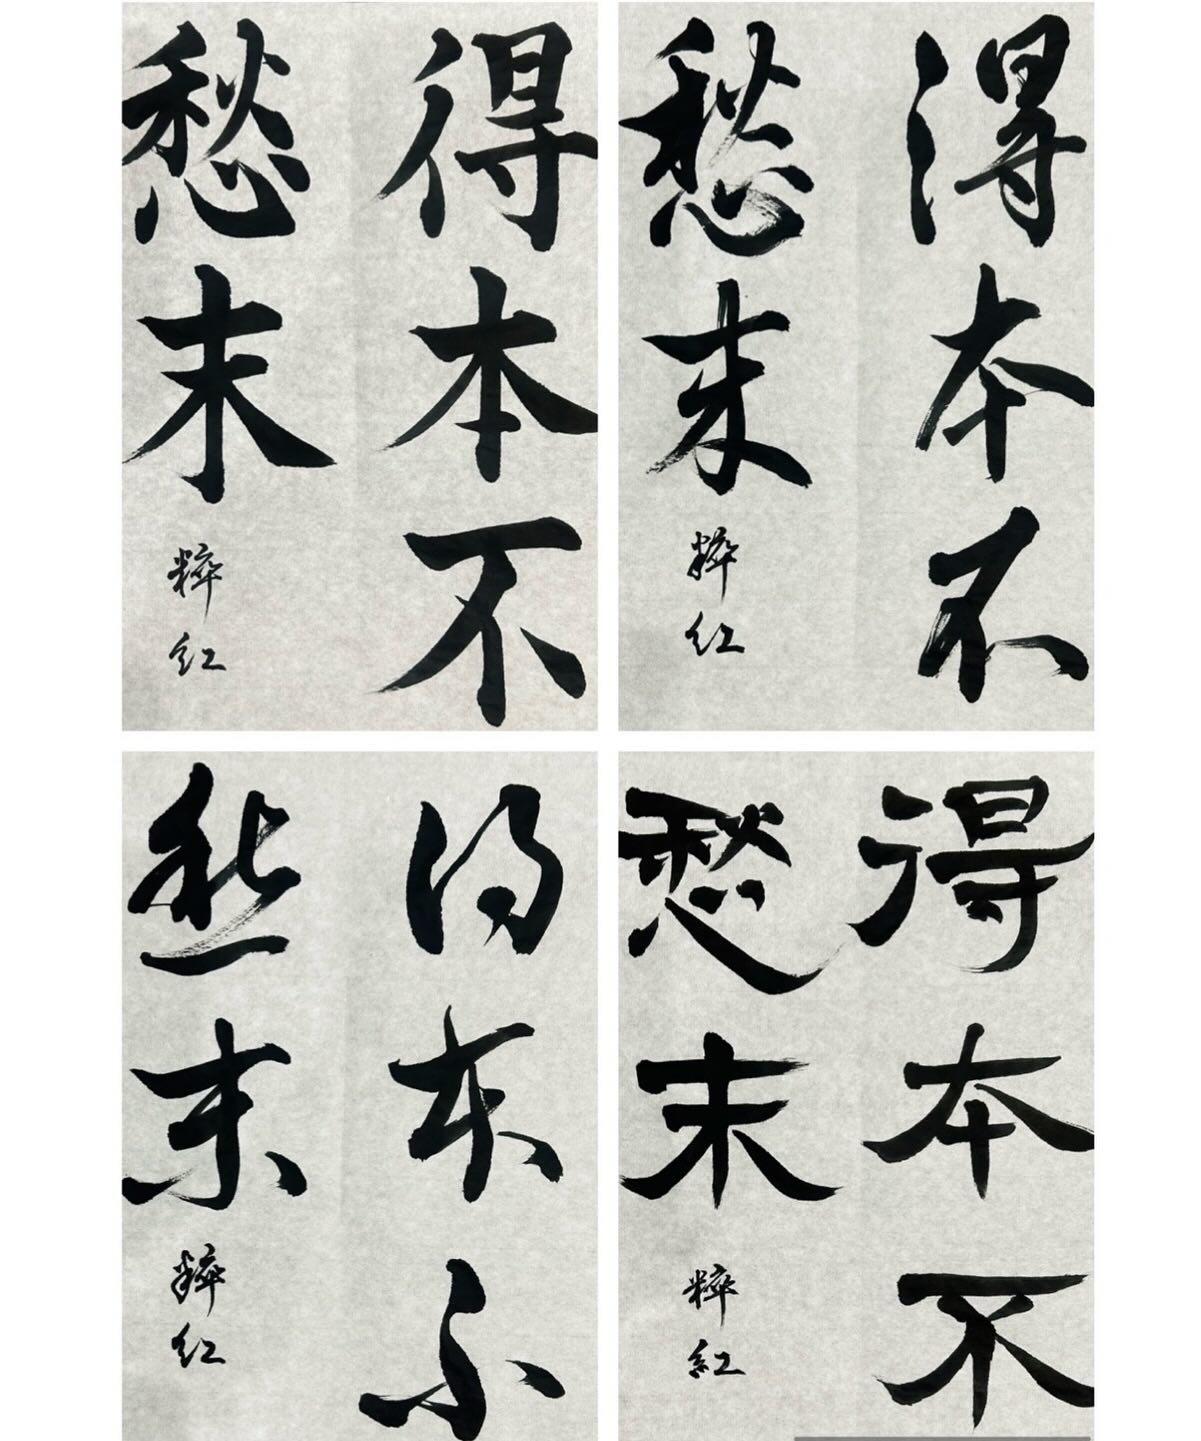 得本不
愁末
粹红
得本不
愁末
粹红
得本不
愁末
粹红
得本不
愁末
粹紅